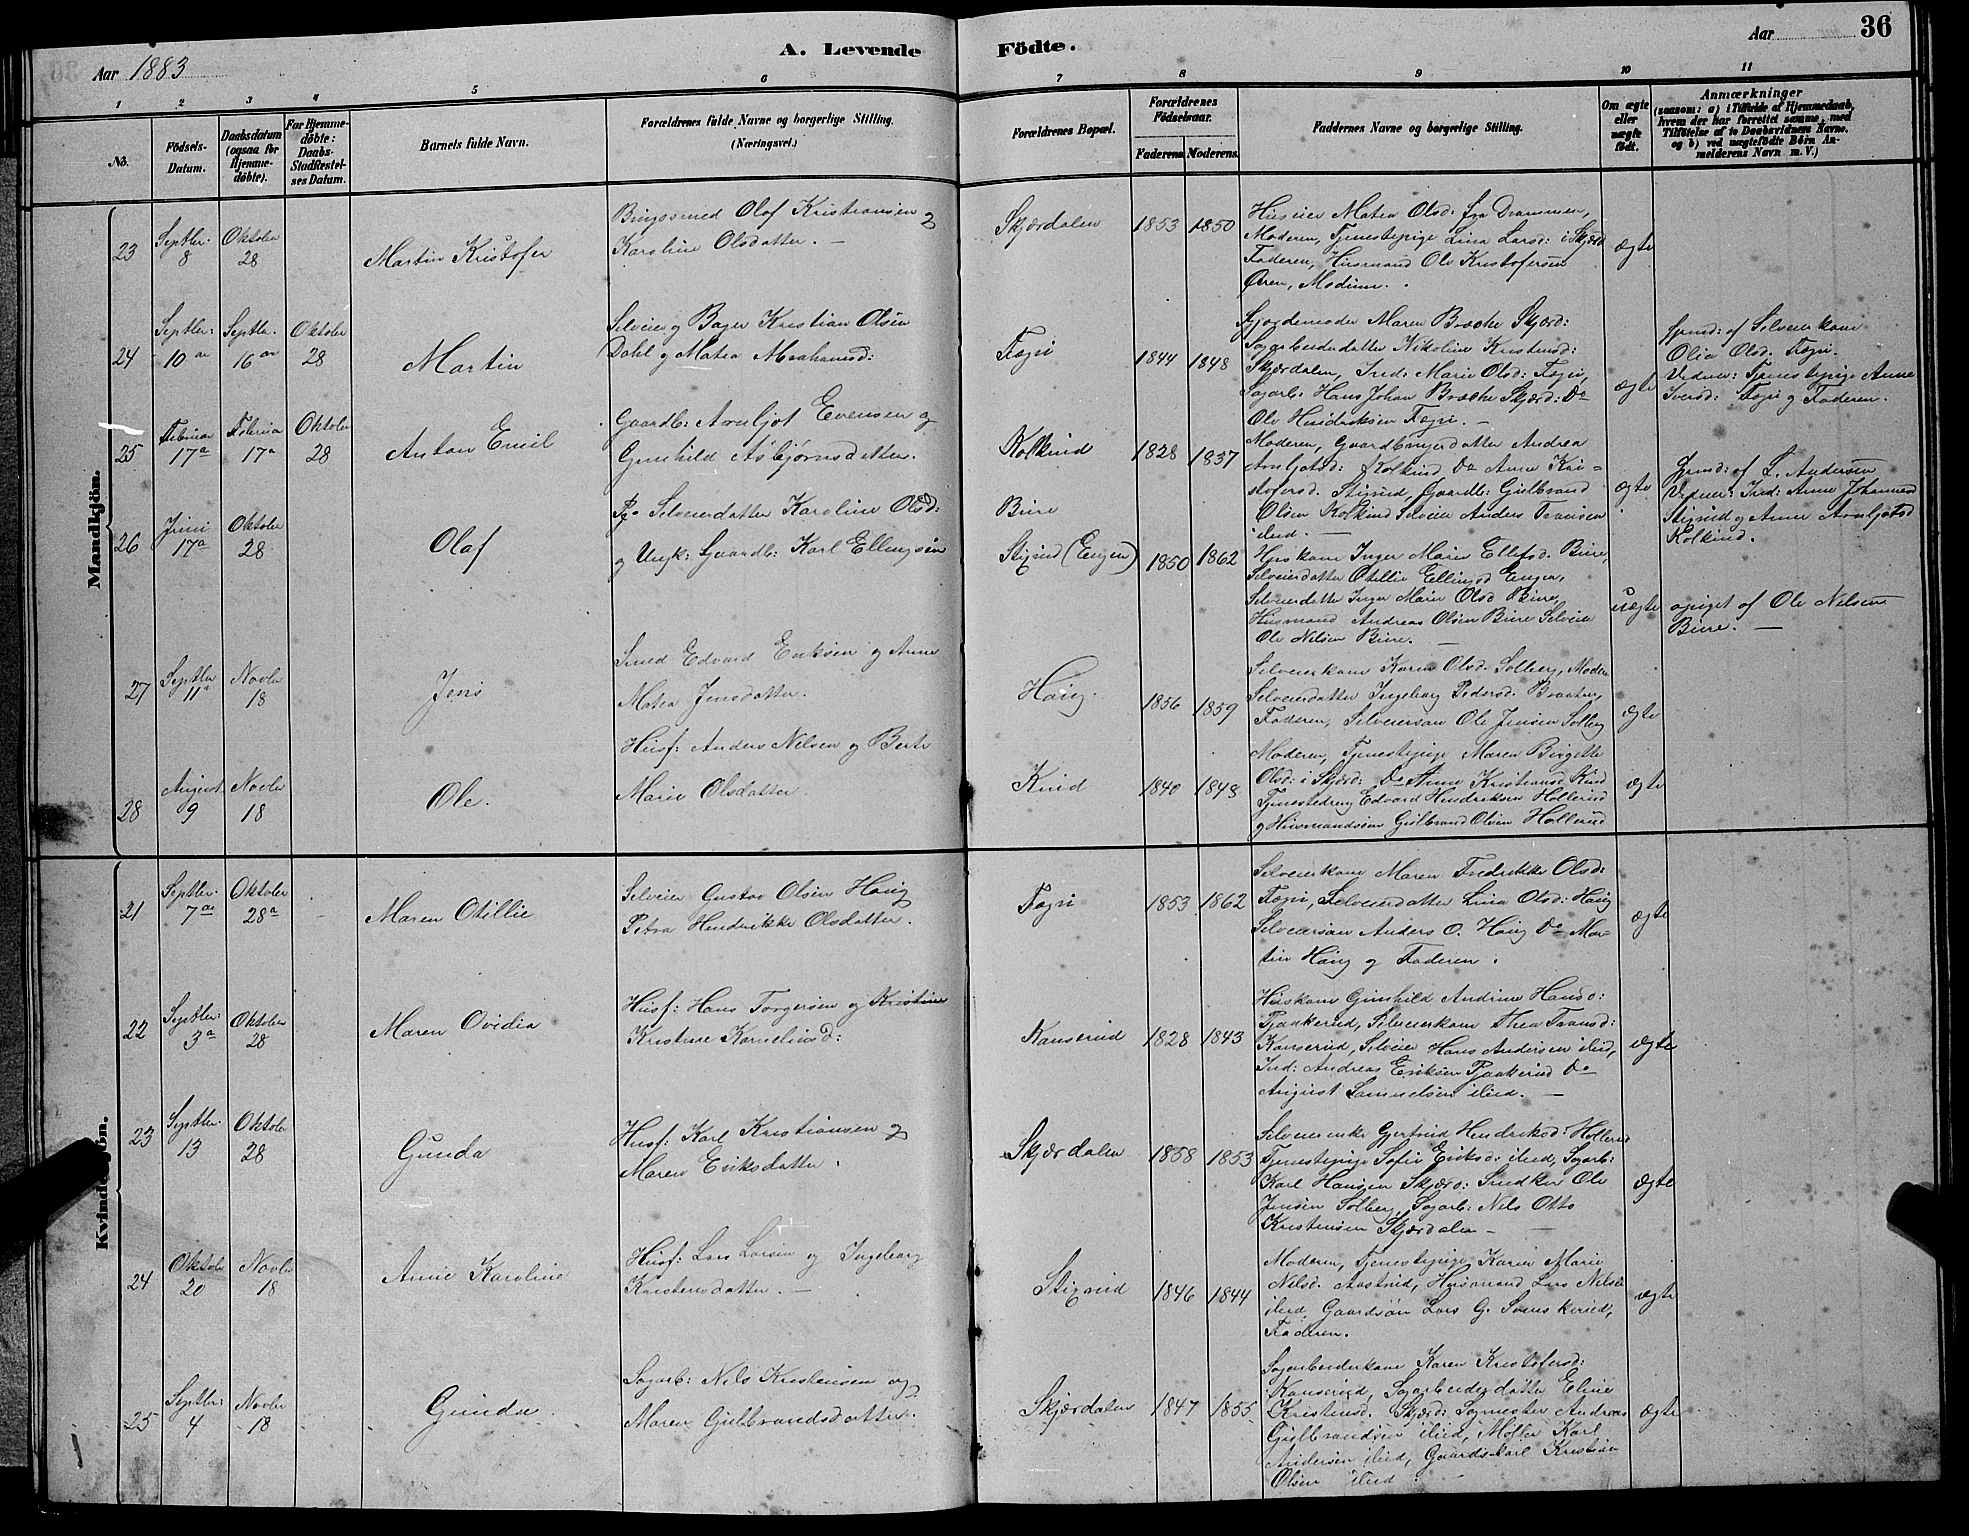 A. Levende Födte.
Aar 1883
Aar 36
1 2 3 4 5 6 7 8 9 10 11
No.
Födsels-
Datum.
Daabsdatum
(ogsaa for
Hjemme-
döbte).
For Hjemme-
döbte:
Daabs-
Stadfæstel-
ses Datum.
Barnets fulde Navn.
Forældrenes fulde Navne og borgerlige Stilling.
(Næringsvei.)
Forældrenes Bopæl.
Forældrenes
Födselsaar.
Faderens. Moderens.
Faddernes Navne og borgerlige Stilling.
Om ægte
eller
uægte
födt.
Anmærkninger
(saasom: a) i Tilfælde af Hjemmedaab,
hvem der har forrettet samme, med
Tilföielse af to Daabsvidners Navne.
og b) ved uægtefödte Börn An-
melderens Navn m. V.)
Mandkjön.
23
Septbr: 8
Oktober 28
Martin Kristofer
Olaf Kristiansen og
Karoline Olsdatter. —
Skjærdalen
1853 1850
Huseier Matea Olsd: fra Drammen,
Moderen, Tjenestepige Lina Larsd: i Skjærd
Faderen, Husmand Ole Kristofersen
Øren, Modum.
ægte
24
Septbr: 10de
Septbr. 16de
Oktober 28
Martin
Selveier og Bager Kristian Olsen
Dahl og Matea Abrahamsd:
Fagri
1844 1848
Gjordemoder Maren Brække Skjærd:
Sagarbeiderdatter Nikoline Kristensd:
Skjærdalen, Ind: Marie Olsd: Fagri,
Sagarb. Hans Johan Brække Skjærd: Do
Ole Hendriksen Fagri. —
ægte
Hjmd: af Selveierkone
Olia Olsd. Fagri.
Vidner: Tjenestepige Anne
Iversd: Fagri og Faderen.
25
Februar 17a
Februar 17a
Oktober 28
Anton Emil
Gaardb: Arnljot Evensen og
Gunhild Asbjørnsdatter.
Kolkind
1828 1837
Moderen, Gaardbrugerdatter Andrea
Arnljotsd: Kolkind Do Anne Kri-
stofersd. Stixrud, Gaardb: Gulbrand
Olsen Kolkind Selveier Anders Fransen
ibid. —
ægte
Hjmd: af L. Andersen
Vidner: Ind: Anne Johannesd
Stixrud og Anne Arnljotsd
Kolkind.
26
Juni 17a
Oktober 28
Olaf
Pg. Selveierdatter Karoline Olsd:
og Ungk: Gaardb: Karl Ellingsen
Bure
Stixrud (Engen)
1850 1862
Huskone Inger Marie Ellefsd. Bure,
Selveierdatter Otillie Ellingsd Engen,
Selveierdatter Inger Marie Olsd Bure,
Husmand Andreas Olsen Bure Selveier
Ole Nilsen Bure. —
uægte
opgivet af Ole Nelsen
Bure. —
27
Septbr 11a
Novbr 18
Jens
Smed Edvard Eriksen og Anne
Matea Jensdatter.
Haug.
1856 1859
Selveierkone Karen Olsd. Solberg, Moder
Selveierdatter Ingeborg Pedersd. Braaten,
Faderen, Selveiersøn Ole Jensen Solberg
ægte
28
August 9
Novbr 18
Ole.
Husf: Anders Nelsen og Berte
Marie Olsdatter.
Kind
1840 1843
Moderen, Tjenestepige Maren Birgitte
Olsd: i Skjærd: Do Anne Kristiansd Kind
Tjenestedreng Edvard Hendriksen Hollerud
og Husmandssøn Gulbrand Olsen Hollerud
ægte
Kvindekjön.
21
Septbr. 7de
Oktober 28a
Maren Otillie
Selveier Gustav Olsen Haug
Petra Hendrikke Olsdatter.
Fagri
1853 1862
Selveierkone Maren Fredrikke Olsd:
Fagri, Selveierdatter Lina Olsd: Haug
Selveiersøn Anders O. Haug Do Mar-
tin Haug og Faderen.
ægte
22
Septbr: 3a
Oktober 28
Maren Ovidia
Husf: Hans Torgersen og Kristine
Kristine Korneliusd:
Kanserud
1828 1843
Huskone Gunhild Andrine Hansd:
Pjaakerud, Selveierkone Thea Fransd:
Kanserud, Selveier Hans Andersen ibid,
Ind: Andreas Eriksen Pjaakerud Do
August Samuelsen ibid. —
ægte
23
Septbr. 13
Oktober 28
Gunda
Husf: Karl Kristiansen og
Maren Eriksdatter.
Skjærdalen
1858 1853
Selveierenke Gjertrud Hendriksd: Hollerud
Tjenestepige Sofie Eriksd: ibid, Sagarb:
Karl Hansen Skjærd: Snedker Ole
Jensen Solberg, Sagarb: Nils Otto
Kristensen Skjærdalen —
ægte
24
Oktober 20
Novbr 18
Anne Karoline
Husf: Lars Larsen og Ingeborg
Kristensdatter. —
Stixrud
1846 1844
Moderen, Tjenestepige Karen Marie
Nilsd. Aastrud, Husmand Lars Nilsen
ibid, Gaardsøn Lars G. Svenskerud,
Faderen.
ægte
25
Septbr: 4
Novbr 18
Gunda
Sagarb: Nils Kristensen og
Maren Gulbrandsdatter.
Skjærdalen
1847 1855
Sagarbeiderkone Karen Kristofersd:
Kanserud, Sagarbeiderdatter Eline
Kristensd. Skjærd: Sagmester Andreas
Gulbrandsen ibid, Møller Karl
Andersen ibid, Gaardskarl Kristian
Olsen ibid
ægte